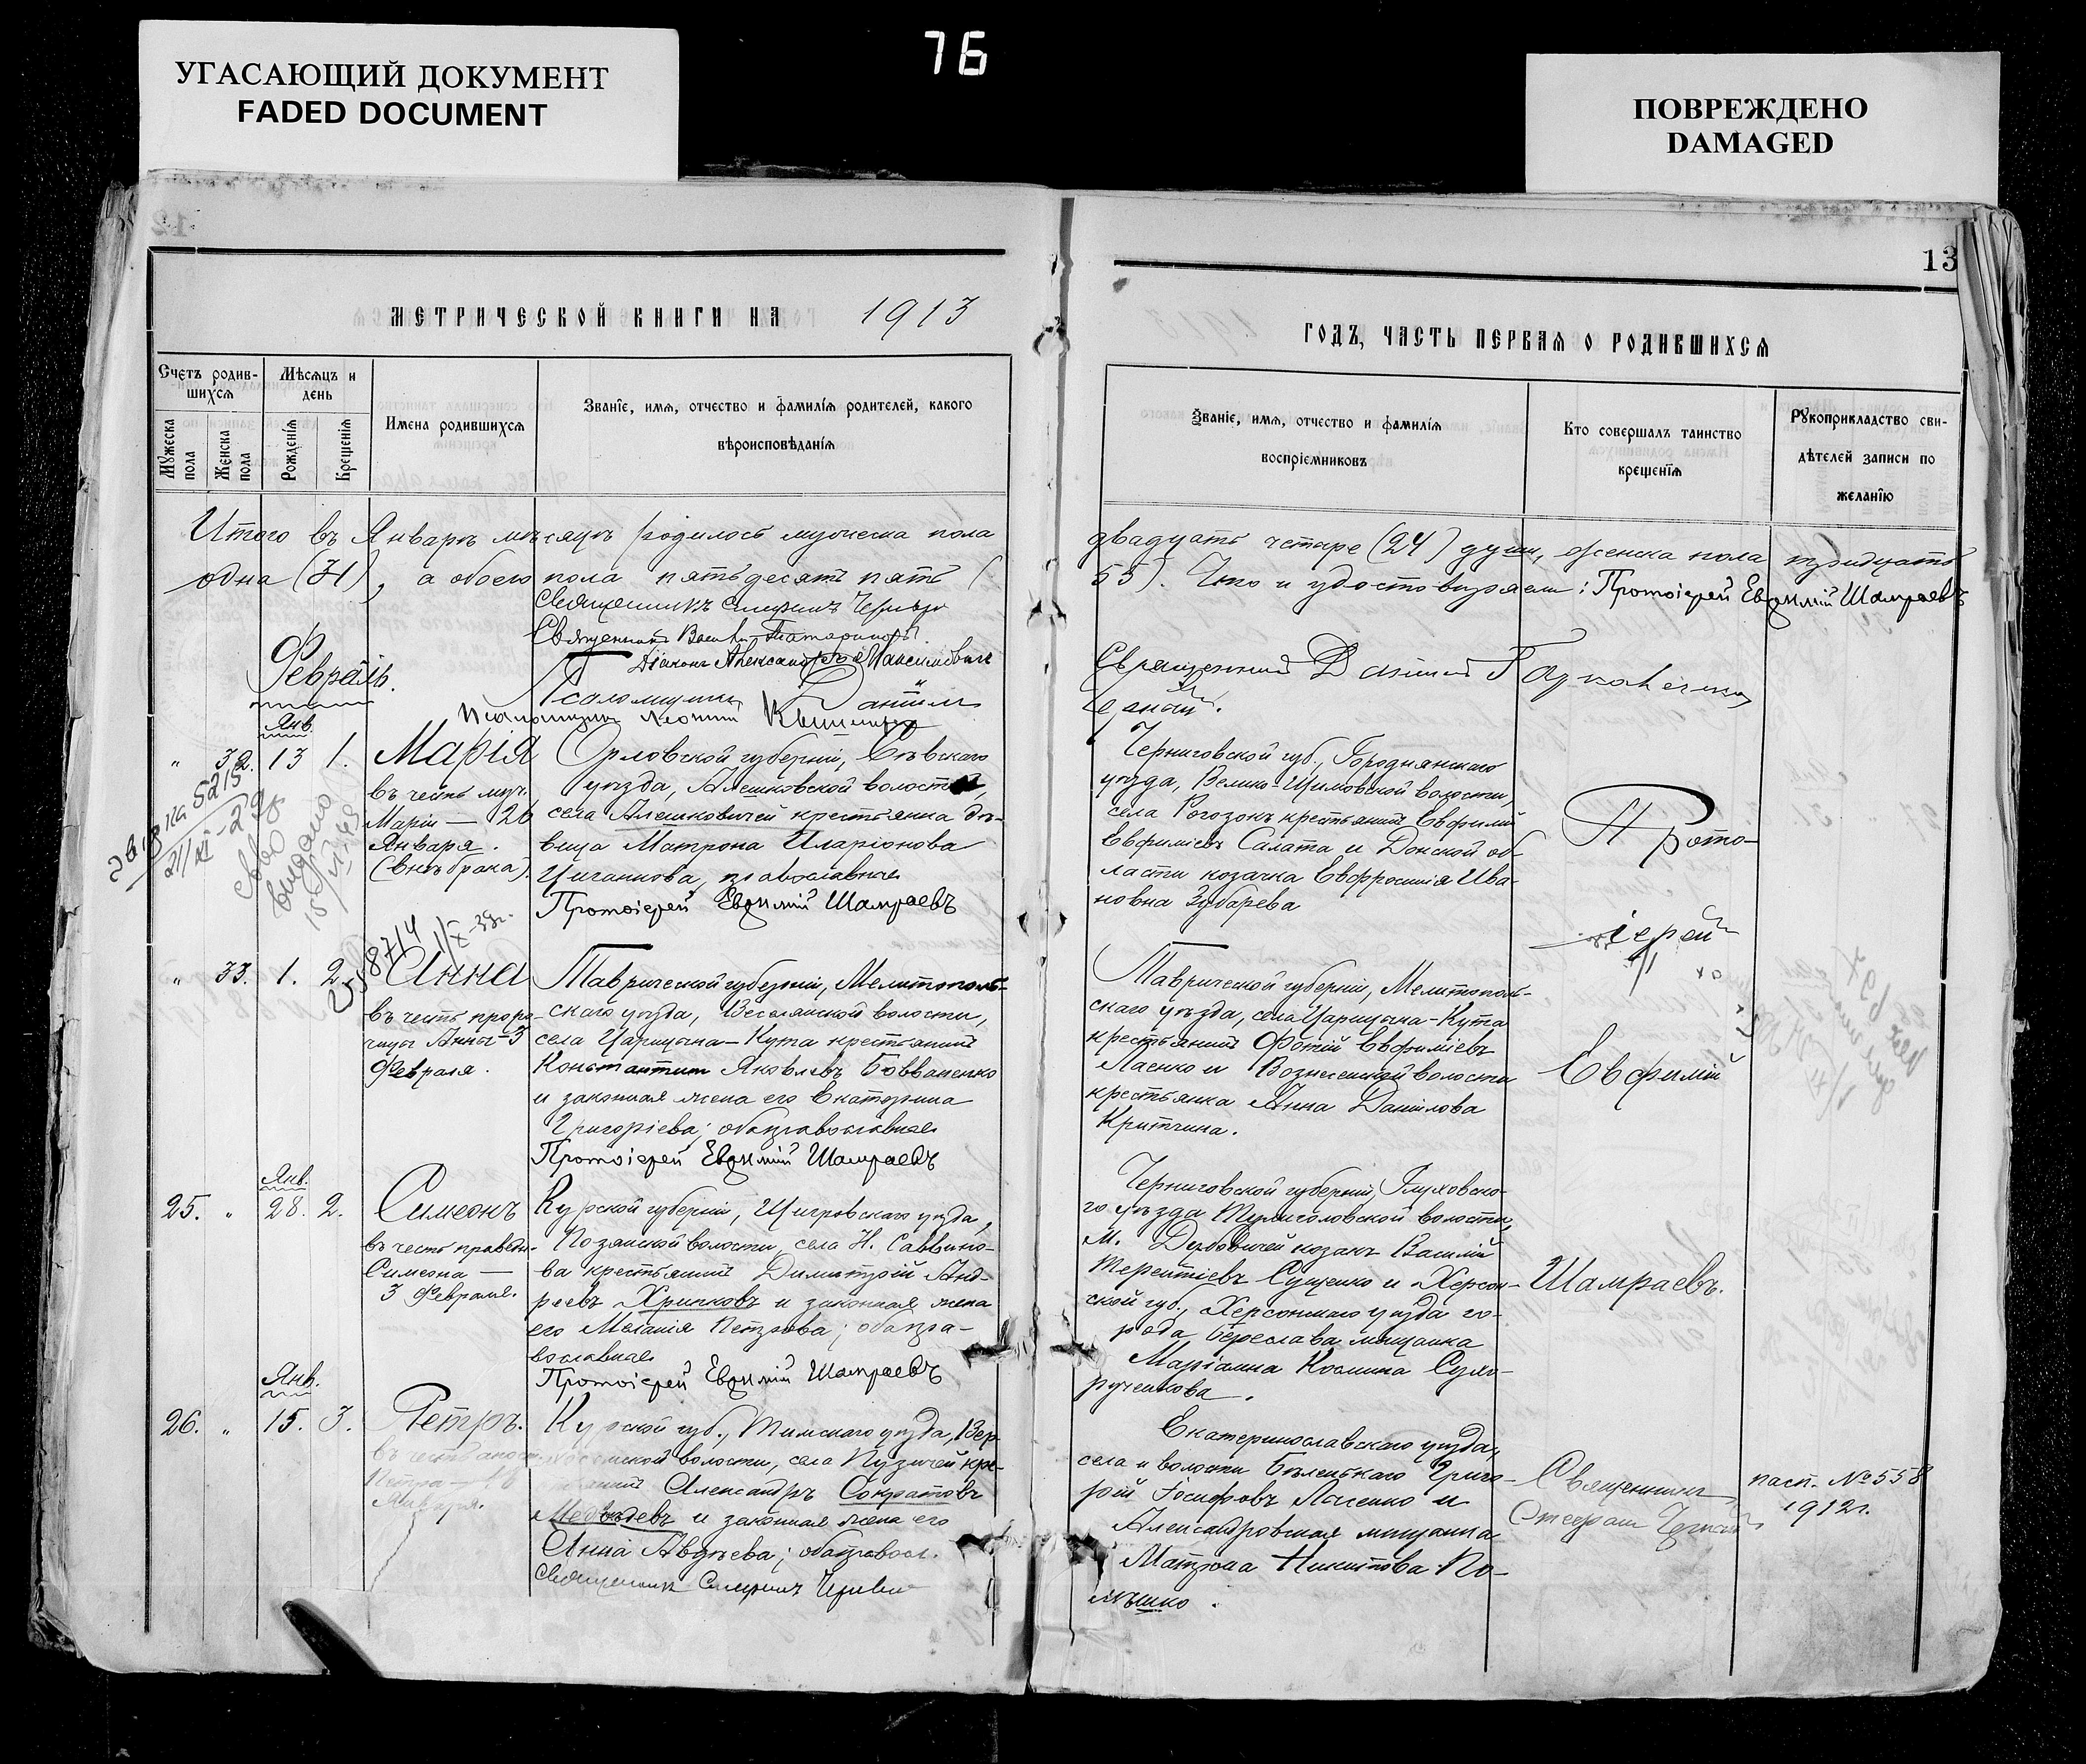 УГАСАЮЩИЙ ДОКУМЕНТ
FADED DOCUMENT
76
ПОВРЕЖДЕНО
DAMAGED
13
МЕТРИЧЕСКОЙ КНИГИ НА 1913
ГОДЪ, ЧАСТЬ ПЕРВАЯ О РОДИВШИХСЯ
Счетъ родив-
шихся
Мѣсяцъ и
день
Мужеска пола
Женска пола
Рожденія
Крещенія
Имена родившихся
Званіе, имя, отчество и фамилія родителей, какого
вѣроисповѣданія
Званіе, имя, отчество и фамилія
воспріемниковъ
Кто совершалъ таинство
крещенія
Рукоприкладство сви-
дѣтелей записи по
желанію
Итого въ Январѣ мѣсяцѣ родилось мужеска пола
двадцать четыре (24) души, женска пола тридцать
одна (31), а обоего пола пятьдесят пять (
55). Что и удостовѣряем: Протоіерей Евфимій Шамраевъ
Священникъ Стефанъ
Священникъ
Діаконъ Александръ Максимович
Псаломщикъ Даніил
Псаломщикъ
Священникъ
Февраль.
Янв.
" 32. 13 1.
Марія
въ честь муч.
Маріи — 26
Января.
(внѣ брака).
Орловской губерніи, Сѣвскаго
уѣзда, Алешковской волости,
села Алешковичей крестьянка дѣ-
вица Матрона Иларіонова
Цыганкова, православная
Протоіерей Евфимій Шамраевъ
Черниговской губ., Городнянскаго
уѣзда, Велико- волости,
села крестьянинъ Евфимій
Евфиміевъ Салата и Донской об-
ласти козачка Евфросинія Ива-
новна Зубарева
Прото-
іерей
Евфимій
Шамраевъ.
выдано
" 33. 1. 2.
Анна
въ честь проро-
чицы Анны — 3
Февраля.
Таврической губерніи, Мелитополь-
скаго уѣзда, Веселянской волости,
села Царицына-Кута крестьянинъ
Константинъ Яковлевъ
и законная жена его Екатерина
Григоріева; оба православные
Протоіерей Евфимій Шамраевъ
Таврической губерніи, Мелитополь-
скаго уѣзда, села Царицына-Кута
крестьянинъ Фотій Евфиміевъ
и волости
крестьянка Анна Даніилова
Критчина.
Янв.
25. " 28. 2.
Симеонъ
въ честь праведн.
Симеона —
3 Февраля.
Курской губерніи, Щигровскаго уѣзда,
волости, села Н. Саввино-
ва крестьянинъ Димитрій Анд-
реевъ Хрипковъ и законная жена
его Меланія Петрова; оба пра-
вославные
Протоіерей Евфимій Шамраевъ
Черниговской губерніи, Глуховско-
го уѣзда Тулиголовской волости,
м. козакъ Василій
Терентіевъ Сущенко и Херсон-
ской губ., Херсонскаго уѣзда го-
рода Береслава мѣщанка
Маріанна Космина Сухо-
рученкова.
Янв.
26. " 15. 3.
Петръ.
въ честь апост.
Петра — 16
Января.
Курской губ., Тимскаго уѣзда, Вер-
волости, села Пузачей кре-
стьянинъ Александръ Сократовъ
Медвѣдевъ и законная жена его
Анна Авдѣева; оба правосл.
Священникъ Стефанъ
Екатеринославскаго уѣзда,
села и волости Бѣленькаго Григо-
рій Іосифовъ и
Александровская мѣщанка
Матрона Никитова По-
лѣшко.
Священникъ
Стефанъ
пасп. № 558
1912г.